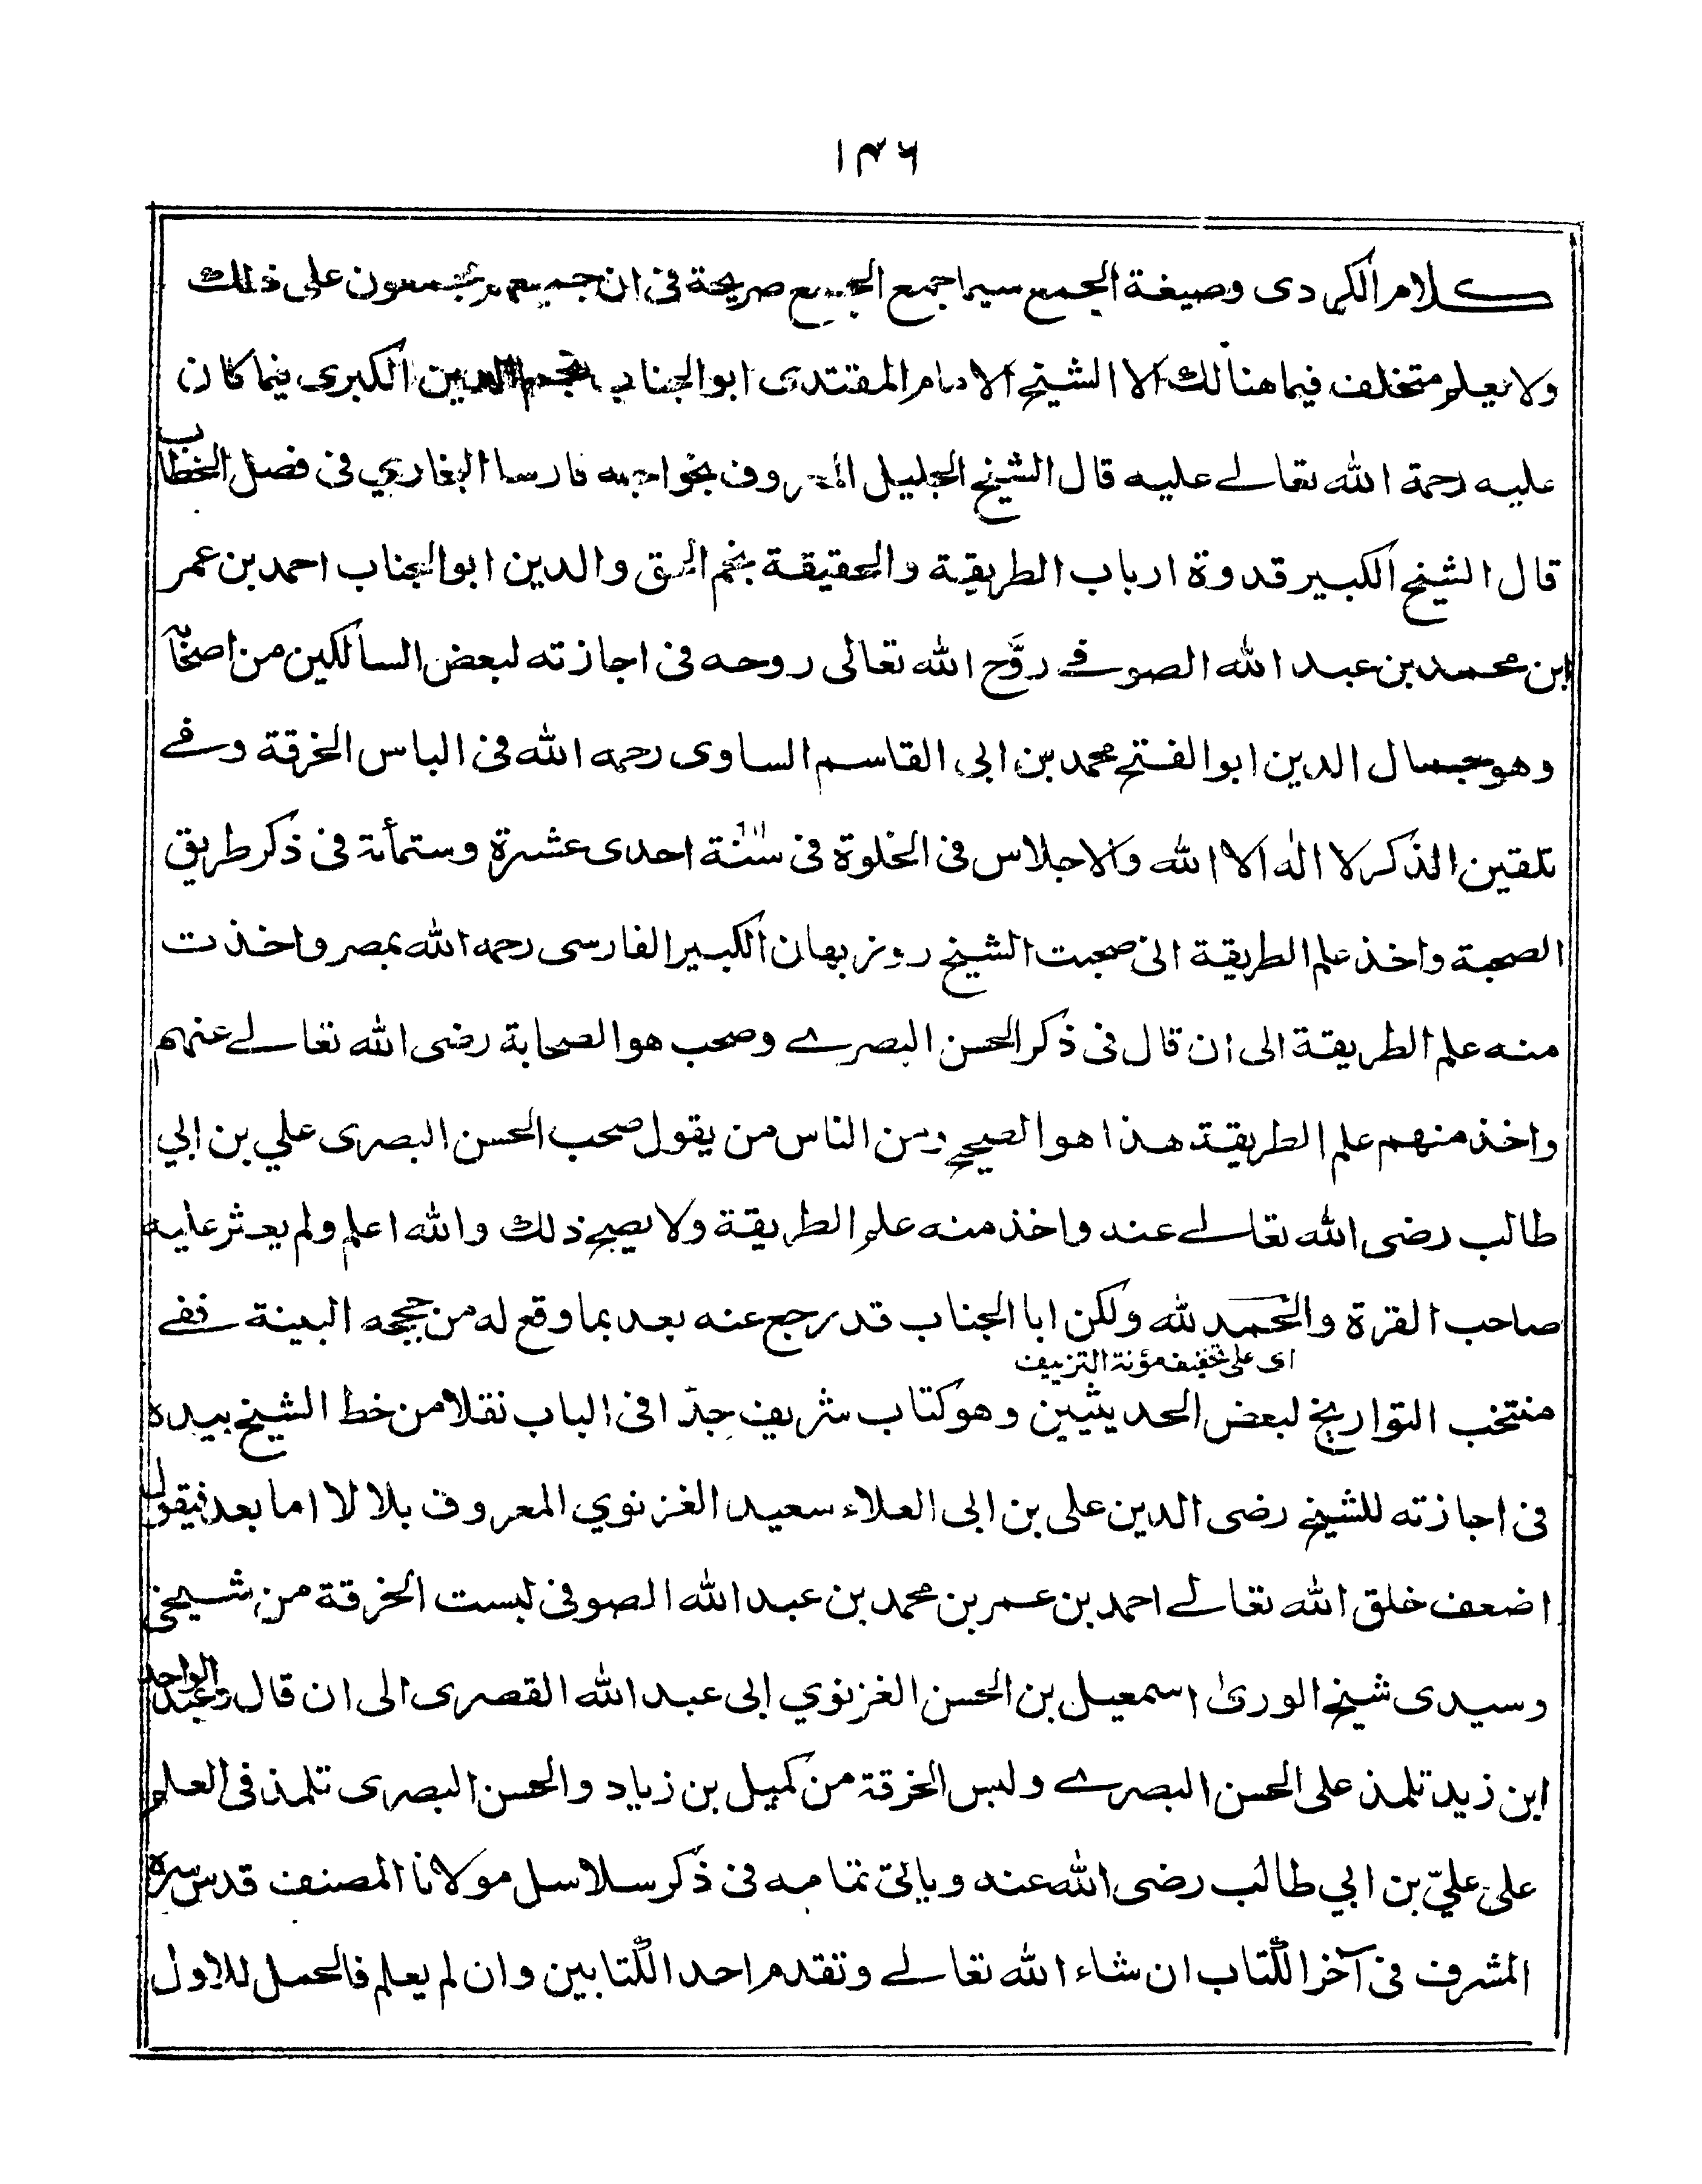 ١٣٦
كلام الكردى وصيغة الجمع سيما جمع الجميع صريحة فى ان جميعهم مجمعون على ذلك
ولا يعلم متخلف فيما هنالك الا الشيخ الامام المقتدى ابو الجناب نجم الدين الكبرى فيما كان
عليه رحمة الله تعالے عليه قال الشيخ الجليل المعروف بخواجه پارسا البخاري فى فصل الخطاب
قال الشيخ الكبير قدوة ارباب الطريقة والحقيقة نجم الحق والدين ابو الجناب احمد بن عمر
ابن محمد بن عبد الله الصوفے روَّح الله تعالى روحه فى اجازته لبعض السالكين من اصحابه
وهو جمال الدين ابو الفتح محمد بن ابى القاسم الساوى رحمه الله فى الباس الخرقة وفے
تلقين الذكر لا اله الا الله والاجلاس فى الخلوة فى سنة ٦١١ احدى عشرة وستمأة فى ذكر طريق
الصحبة واخذ علم الطريقة انى صحبت الشيخ روزبهان الكبير الفارسى رحمه الله بمصر واخذت
منه علم الطريقة الى ان قال فى ذكر الحسن البصرے وصحب هو الصحابة رضى الله تعالے عنهم
واخذ منهم علم الطريقة هذا هو الصحيح ومن الناس من يقول صحب الحسن البصرى علي بن ابي
طالب رضى الله تعالے عنه واخذ منه علم الطريقة ولا يصح ذلك والله اعلم ولم يعثر عليه
صاحب القرة والحمد لله ولكن ابا الجناب قد رجع عنه بعد بما وقع له من حججه البينة ففے
اى على تخفيف مؤنة التزييف
منتخب التواريخ لبعض الحديثيين وهو كتاب شريف جدّا فى الباب نقلا من خط الشيخ بيده
فى اجازته للشيخ رضى الدين على بن ابى العلاء سعيد الغزنوي المعروف بلالا اما بعد فيقول
اضعف خلق الله تعالے احمد بن عمر بن محمد بن عبد الله الصوفى لبست الخرقة من شيخى
وسيدى شيخ الورىٰ اسمعيل بن الحسن الغزنوي ابى عبد الله القصرى الى ان قال وعبد الواحد
ابن زيد تلمذ على الحسن البصرے ولبس الخرقة من كميل بن زياد والحسن البصرى تلمذ فى العلم
على عليّ بن ابي طالب رضى الله عنه وياتى تمامه فى ذكر سلاسل مولانا المصنف قدس سره
المشرف فى آخر الكتاب ان شاء الله تعالے وتقدم احد الكتابين وان لم يعلم فالحمل للاول